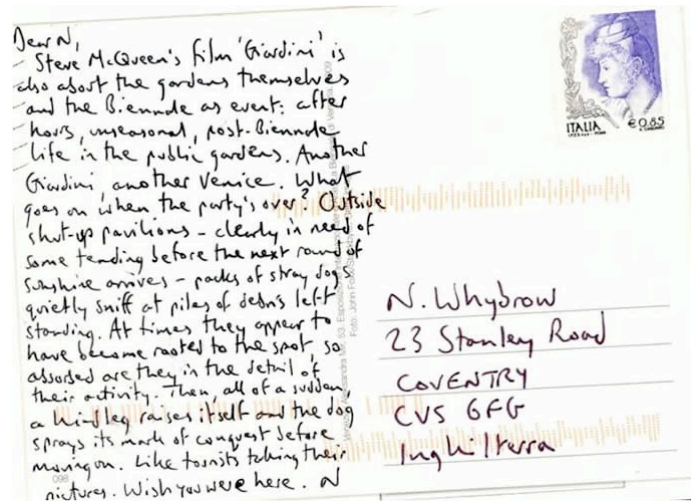 Dear N,
Steve McQueen's film 'Giardini' is
also about the gardens themselves
and the Biennale as event: after
hours, unseasonal, post-Biennale
life in the public gardens. Another
Giardini, another Venice. What
goes on when the party's over? Outside
shut-up pavilions - clearly in need of
some tending before the next round of
sunshine arrives - packs of stray dogs
quietly sniff at piles of debris left
standing. At times they appear to
have become rooted to the spot, so
absorbed are they in the detail of
their activity. Then, all of a sudden,
a hindleg raises itself and the dog
sprays its mark of conquest before
moving on. Like tourists taking their
pictures. Wish you were here. N
ITALIA
€0,85
N. Whybrow
23 Stanley Road
COVENTRY
CV5 6FG
Inghilterra
098